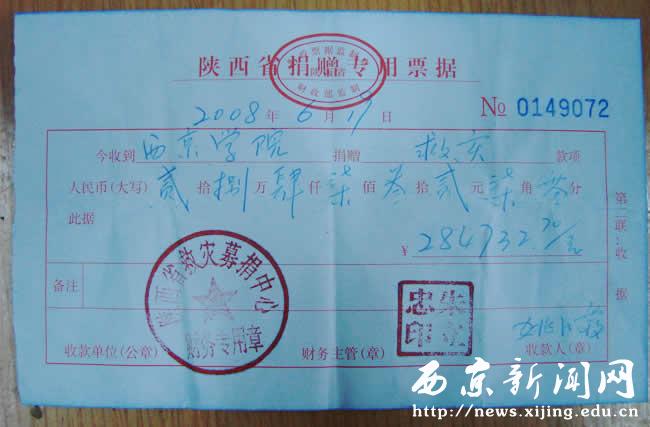 陕西省捐赠专用票据
财政部监制
2008年6月17日
№ 0149072
今收到 西京学院 捐赠 救灾 款项
人民币(大写) 贰拾捌万肆仟柒佰叁拾贰元柒角零分
此据
¥ 284732.70元
第二联:收据
备注
陕西省救灾募捐中心
财务专用章
收款单位(公章)
财务主管(章)
收款人(章)
西京新闻网
http://news.xijing.edu.cn